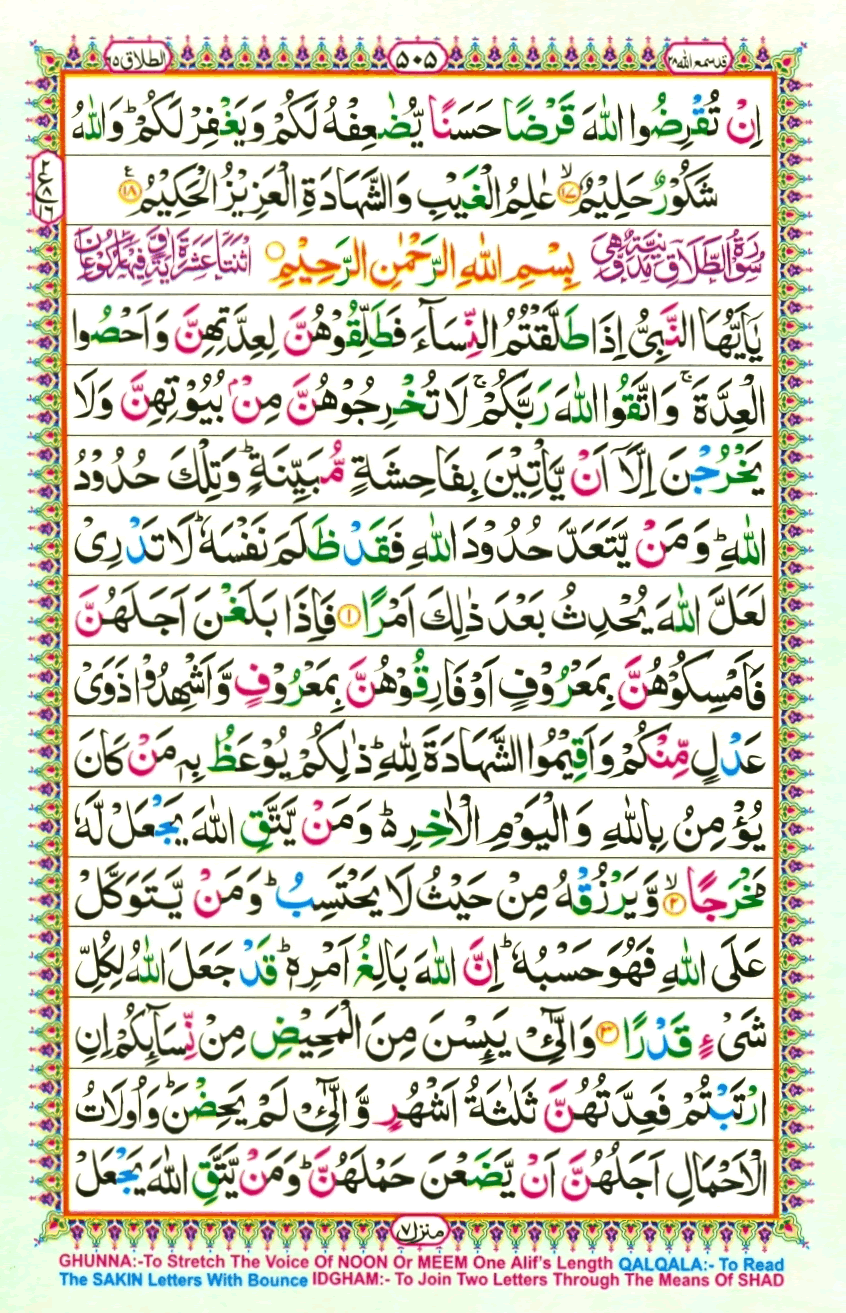 قد سمع الله ٢٨
٥٠٥
الطلاق ٦٥
اِنْ تُقْرِضُوا اللّٰهَ قَرْضًا حَسَنًا يُّضٰعِفْهُ لَكُمْ وَيَغْفِرْ لَكُمْ ؕ وَاللّٰهُ
شَكُوْرٌ حَلِيْمٌ ۙ‏﴿۱۷﴾ عٰلِمُ الْغَيْبِ وَالشَّهَادَةِ الْعَزِيْزُ الْحَكِيْمُ ﴿۱۸﴾
ع ٢ ٨ ١٦
سُوْرَةُ الطَّلَاقِ مَدَنِيَّةٌ وَّهِيَ بِسْمِ اللّٰهِ الرَّحْمٰنِ الرَّحِيْمِ اثْنَتَا عَشْرَةَ اٰيَةً وَّفِيْهَا رُكُوْعَانِ
يٰۤاَيُّهَا النَّبِىُّ اِذَا طَلَّقْتُمُ النِّسَآءَ فَطَلِّقُوْهُنَّ لِعِدَّتِهِنَّ وَاَحْصُوا
الْعِدَّةَ ۚ وَاتَّقُوا اللّٰهَ رَبَّكُمْ ۚ لَا تُخْرِجُوْهُنَّ مِنْۢ بُيُوْتِهِنَّ وَلَا
يَخْرُجْنَ اِلَّاۤ اَنْ يَّاْتِيْنَ بِفَاحِشَةٍ مُّبَيِّنَةٍ ؕ وَتِلْكَ حُدُوْدُ
اللّٰهِ ؕ وَمَنْ يَّتَعَدَّ حُدُوْدَ اللّٰهِ فَقَدْ ظَلَمَ نَفْسَهٗ ؕ لَا تَدْرِىْ
لَعَلَّ اللّٰهَ يُحْدِثُ بَعْدَ ذٰلِكَ اَمْرًا ﴿۱﴾ فَاِذَا بَلَغْنَ اَجَلَهُنَّ
فَاَمْسِكُوْهُنَّ بِمَعْرُوْفٍ اَوْ فَارِقُوْهُنَّ بِمَعْرُوْفٍ وَّاَشْهِدُوْا ذَوَىْ
عَدْلٍ مِّنْكُمْ وَاَقِيْمُوا الشَّهَادَةَ لِلّٰهِ ؕ ذٰلِكُمْ يُوْعَظُ بِهٖ مَنْ كَانَ
يُؤْمِنُ بِاللّٰهِ وَالْيَوْمِ الْاٰخِرِ ؕ وَمَنْ يَّتَّقِ اللّٰهَ يَجْعَلْ لَّهٗ
مَخْرَجًا ۙ﴿۲﴾ وَّيَرْزُقْهُ مِنْ حَيْثُ لَا يَحْتَسِبُ ؕ وَمَنْ يَّتَوَكَّلْ
عَلَى اللّٰهِ فَهُوَ حَسْبُهٗ ؕ اِنَّ اللّٰهَ بَالِغُ اَمْرِهٖ ؕ قَدْ جَعَلَ اللّٰهُ لِكُلِّ
شَىْءٍ قَدْرًا ﴿۳﴾ وَالّٰٓـىِٔۡ يَئِسْنَ مِنَ الْمَحِيْضِ مِنْ نِّسَآئِكُمْ اِنِ
ارْتَبْتُمْ فَعِدَّتُهُنَّ ثَلٰثَةُ اَشْهُرٍ وَّالّٰٓـىِٔۡ لَمْ يَحِضْنَ ؕ وَاُولَاتُ
الْاَحْمَالِ اَجَلُهُنَّ اَنْ يَّضَعْنَ حَمْلَهُنَّ ؕ وَمَنْ يَّتَّقِ اللّٰهَ يَجْعَلْ
منزل ٧
GHUNNA:-To Stretch The Voice Of NOON Or MEEM One Alif's Length QALQALA:- To Read
The SAKIN Letters With Bounce IDGHAM:- To Join Two Letters Through The Means Of SHAD